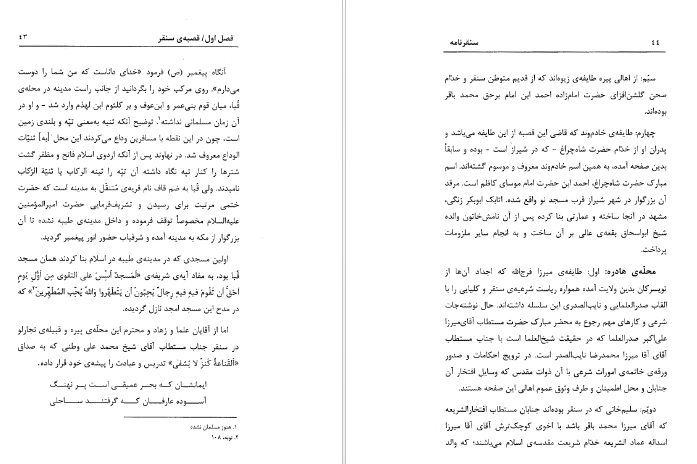 فصل اول/ قصبه‌ی سنقر ۴۳
آنگاه پیغمبر (ص) فرمود «خدای داناست که من شما را دوست
می‌دارم». روی مرکب خود را بگردانید از جانب راست مدینه در محله‌ی
قُبا، میان قوم بنی‌عمر و ابن‌عوف و بر کلثوم ابن لهذم وارد شد - و او در
آن زمان مسلمانی نداشته۱. توضیح آنکه ثنیه به‌معنی تپّه و بلندی زمین
است، چون در این نقطه با مسافرین وداع می‌کردند این محل [به] ثنیّات
الوداع معروف شد. در نهاوند پس از آنکه اردوی اسلام فاتح و مظفر گشت
شترها را کنار تپه نگاه داشته آن تپّه را ثینه الرکاب یا ثنیّة الرّکاب
نامیدند. ولی قُبا به ضم قاف نام قریه‌ی مُتنقّل به مدینه است که حضرت
ختمی مرتبت برای رسیدن و تشریف‌فرمایی حضرت امیرالمؤمنین
علیه‌السلام مخصوصاً توقف فرموده و داخل مدینه‌ی طیبه نشده تا آن
بزرگوار از مکه به مدینه آمده و شرفیاب حضور انور پیغمبر گردید.
اولین مسجدی که در مدینه‌ی طیبه در اسلام بنا کردند همان مسجد
قُبا بود، به مفاد آیه‌ی شریفه‌ی «لَمَسجدٌ اُسِّسَ علی التقوی مِن اَوَّلِ یَومٍ
اَحَقُّ اَن تَقُومَ فیهِ فیهِ رِجالٌ یُحِبّونَ اَن یَتَطَهَّروا وَاللهُ یُحِّبُ المُطَهِّرینَ۲» که
در مدح این مسجد امجد نازل گردیده.
اما از آقایان علما و زهاد و محترم این محلّه‌ی پیره و قبیله‌ی نجارلو
در سنقر جناب مستطاب آقای شیخ محمد علی وطنی که به صداق
«اَلقَناعةُ کَنزٌ لا یُفنی» تدریس و عبادت را پیشه‌ی خود قرار داده.
ایمانشان که بحر عمیقی است پر نهنگ
آسوده عارفان که گرفتند ساحلی
۱. هنوز مسلمان نشده
۲. توبه، ۱۰۸
۴۴ سنقرنامه
سیّم: از اهالی پیره طایفه‌ی زیوه‌اند که از قدیم متوطن سنقر و خدّام
صحن گلشن‌افزای حضرت امام‌زاده احمد ابن امام برحق محمد باقر
بوده‌اند.
چهارم: طایفه‌ی خادم‌وند که قاضی این قصبه از این طایفه می‌باشد و
پدران او از خدّام حضرت شاه‌چراغ - که در شیراز است - بوده و سابقاً
بدین صفحه آمده، به همین اسم خادم‌وند معروف و موسوم گشته‌اند. اسم
مبارک حضرت شاه‌چراغ، احمد ابن حضرت امام موسای کاظم است. مرقد
آن بزرگوار در شهر شیراز قرب مسجد نو واقع شده. اتابک ابوبکر زنگی،
مشهد در آنجا ساخته و عمارتی بنا کرده پس از آن نامش‌خاتون والده
شیخ ابواسحاق بقعه‌ی عالی بر آن ساخت و به انجام سایر ملزومات
پرداخت.
محلّه‌ی هادره: اول: طایفه‌ی میرزا فرج‌الله که اجداد آن‌ها از
تویسرکان بدین ولایت آمده همواره ریاست شرعیه‌ی سنقر و کلیایی را با
القاب صدرالعلمایی و نایب‌الصدری این سلسله داشته‌اند. حال نوشته‌جات
شرعی و کارهای مهم رجوع به محضر مبارک حضرت مستطاب آقای‌میرزا
علی‌اکبر صدرالعلما که در حقیقت شیخ‌العلما است با جناب مستطاب
آقای آقا میرزا محمدرضا نایب‌الصدر است. در ترویج احکامات و صدور
ورقه‌ی خاتمه‌ی امورات شرعی با آن ذوات مقدس که وسایل افتخار آن
جنابان و محل اطمینان و طرف وثوق عموم اهالی این صفحه هستند.
دویّم: سلیم‌خانی که در سنقر بوده‌اند جنابان مستطاب افتخارالشریعه
که آقای میرزا محمد باقر باشد با اخوی کوچک‌ترش آقای آقا میرزا
اسداله عماد الشریعه خدّام شریعت مقدسه‌ی اسلام می‌باشند؛ که والد